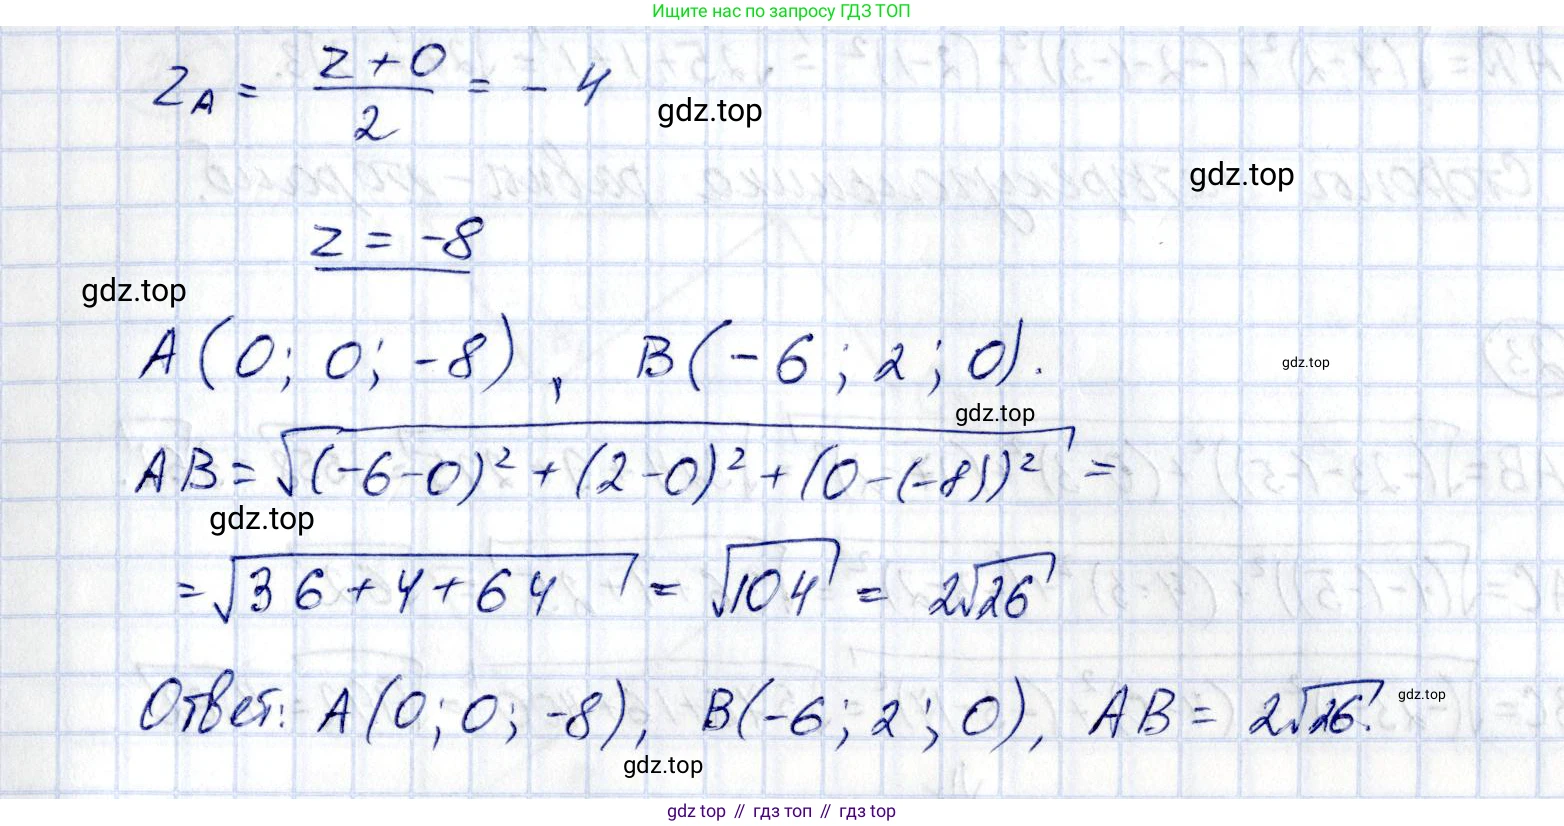 Ищите нас по запросу ГДЗ ТОП
z_A = (z + 0)/2 = - 4
gdz.top
gdz.top
z = -8
gdz.top
A (0; 0; -8) , B (-6 ; 2 ; 0).
gdz.top
gdz.top
AB = √((-6-0)² + (2-0)² + (0-(-8))²) =
gdz.top
= √(36 + 4 + 64) = √104 = 2√26
Ответ: A (0; 0; -8), B (-6; 2; 0), AB = 2√26.
gdz.top
gdz.top
gdz top // гдз топ // гдз top